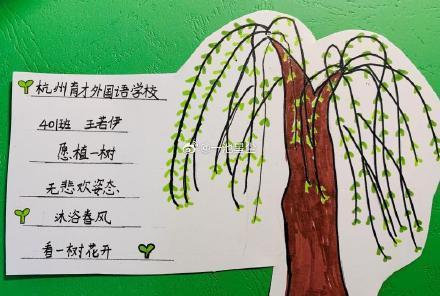 杭州育才外国语学校
401班 王若伊
愿植一树
无悲欢姿态
沐浴春风
看一树花开